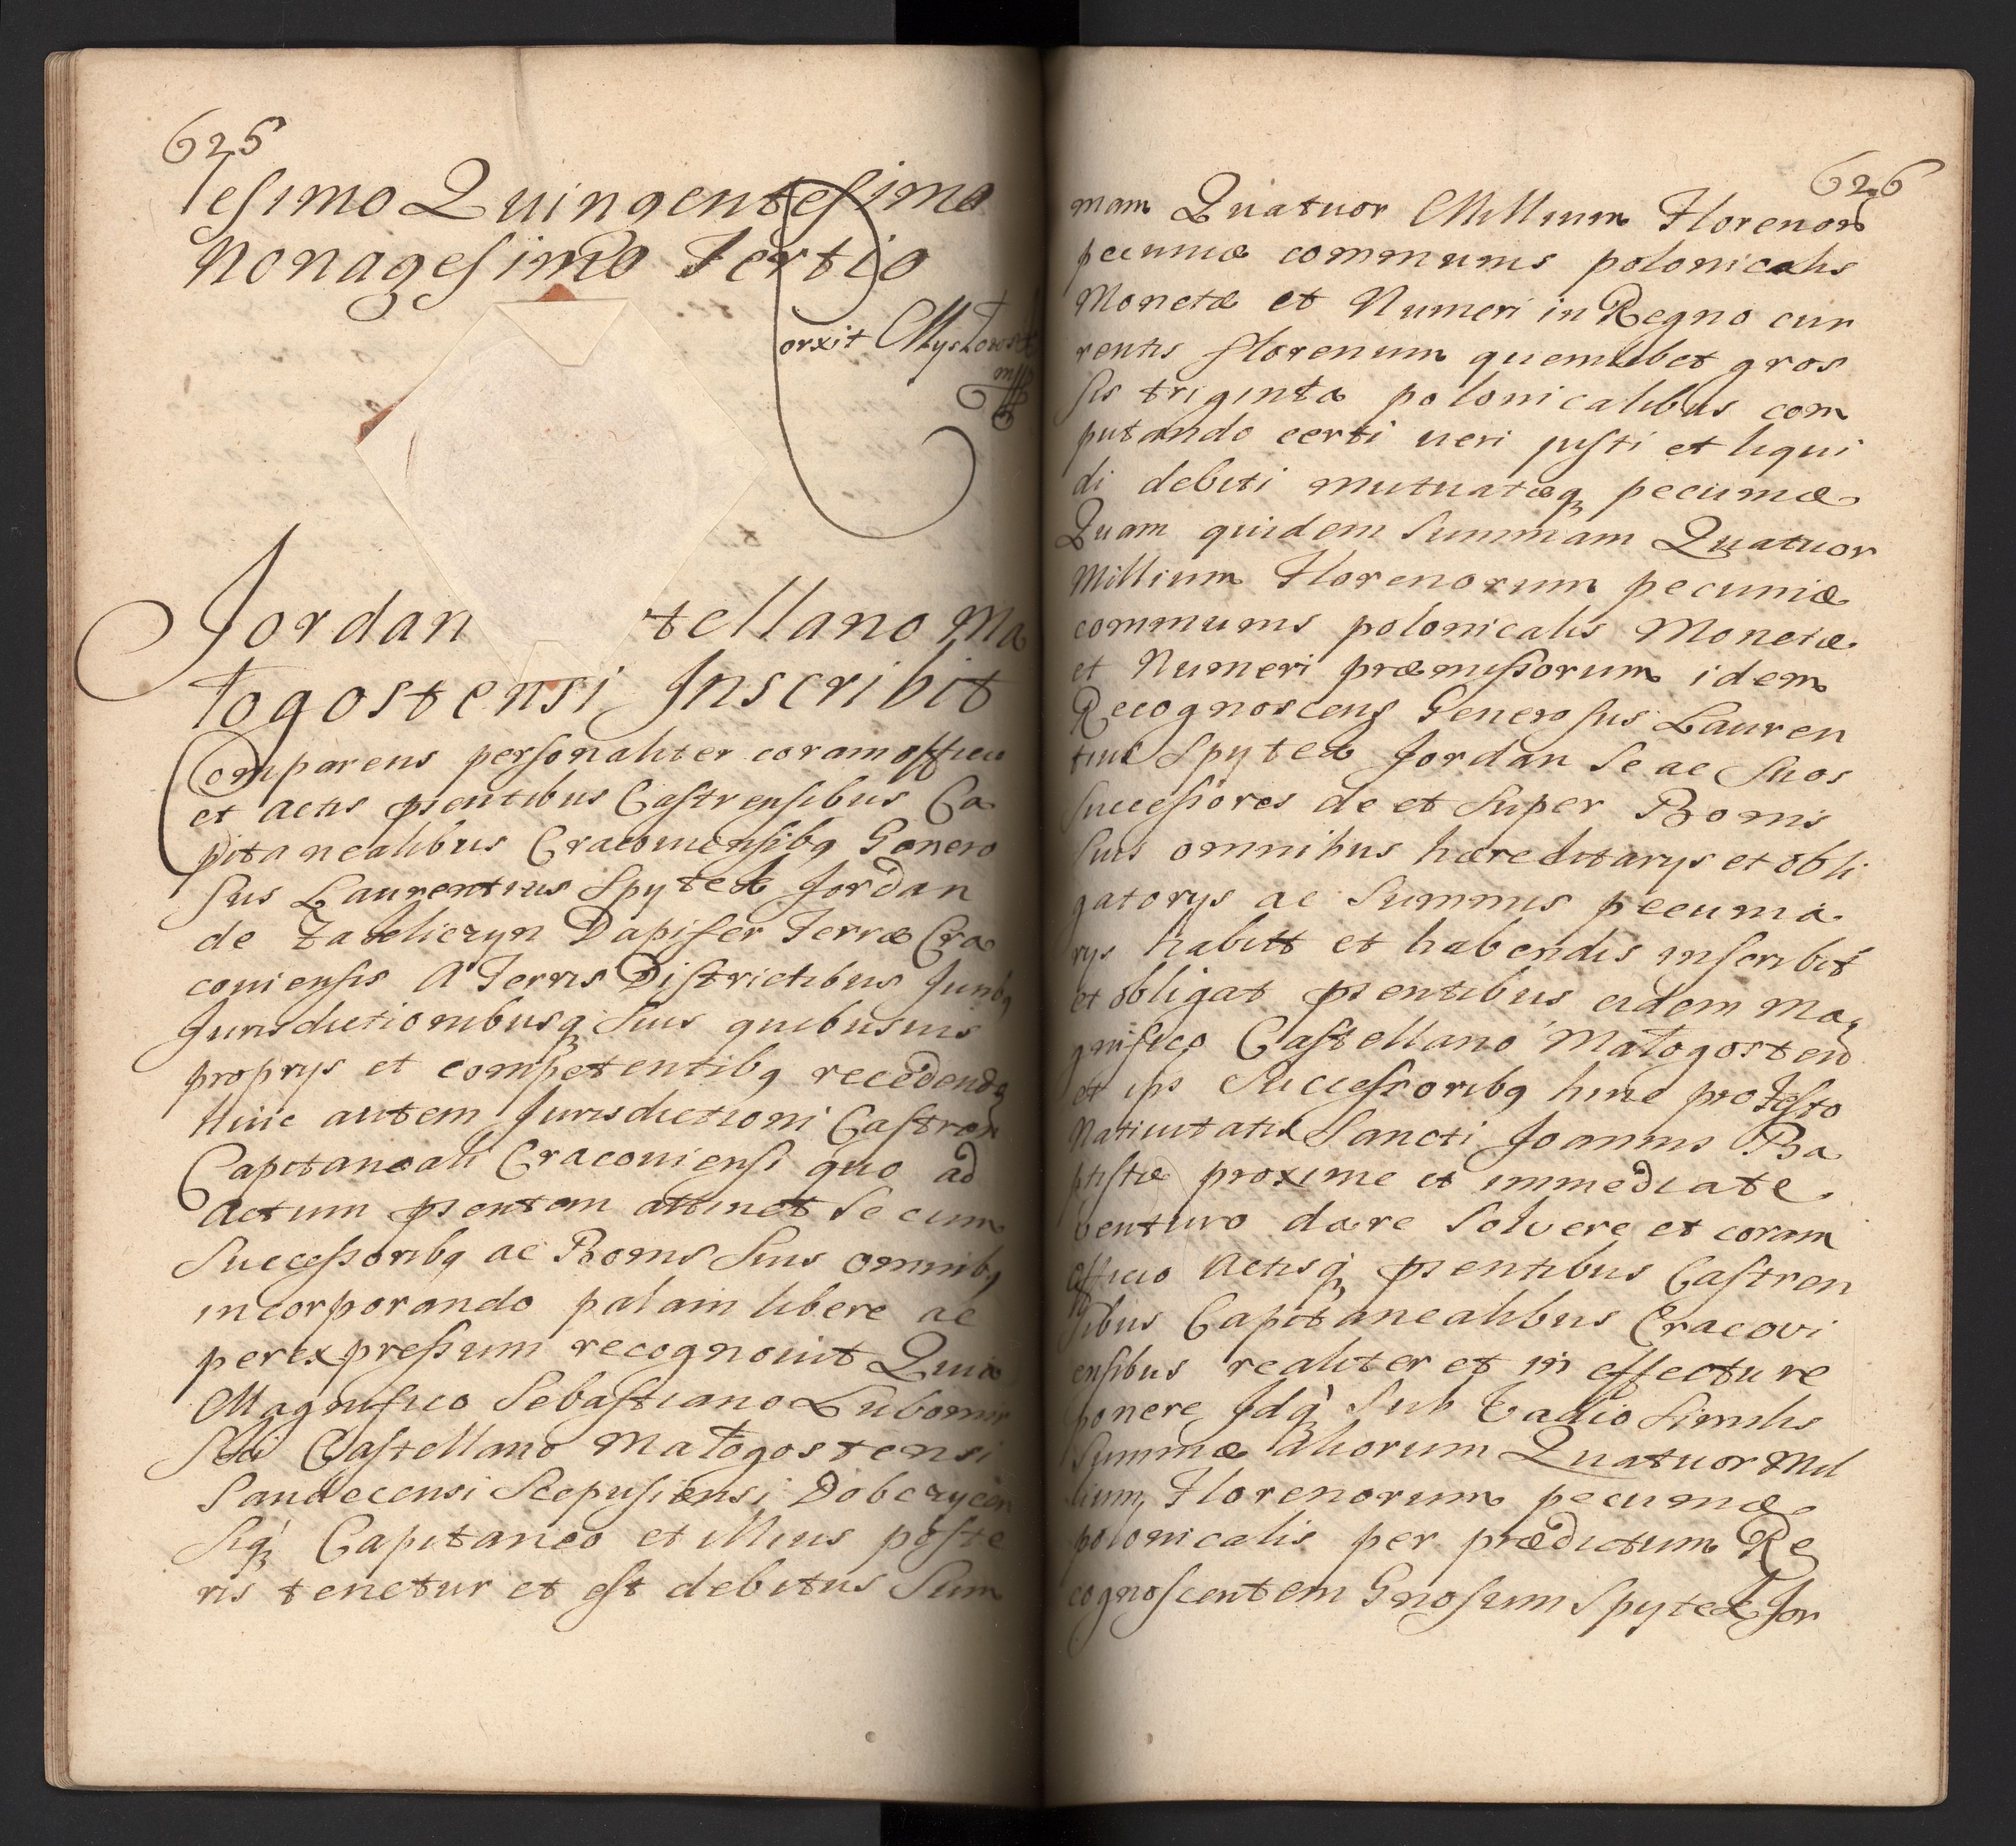 625
lesimo Quingentesimo
Nonagesimo Tertio
orxit
mpp
Jordan tellano Ma
łogostensi Inscribit
Comparens personaliter coram officio
et actis pntibus Castrensibus Ca
pitanealibus Cracouiensibq Genero
sus Laurentius Spytek Jordan
de Zakliczyn Dapifer Terræ Cra
couiensis A Terris Districtibus Juribq
Jurisdictionibusq Suis quibusuis
proprys et competentibq recedendo
huic autem Jurisdictioni Castren
Capitaneali Cracouiensi quo ad
Actum pntem attinet Se cum
Successoribq ac Bonis Suis omnibq
incorporando palam libere ac
per expressum recognouit Quia
Magnifico Sebastiano Lubomir
ski Castellano Małogostensi
Sandecensi Scepusiensi Dobczycen
Siq Capitaneo et illius poste
ris tenetur et est debitus Sum
626
mam Quatuor Millium Florenor
pecuniæ communis polonicalis
Monetæ et Numeri in Regno cur
rentis florenum quemlibet gros
sis triginta polonicalibus com
putando certi ueri justi et liqui
di debiti mutuatæq pecuniæ
Quam quidem Summam Quatuor
Millium Florenorum pecuniæ
communis polonicalis Monetæ
et Numeri præmissorum idem
Recognoscens Generosus Lauren
tius Spytek Jordan Se ac Suos
Successores de et Super Bonis
Suis omnibus hæreditarys et obli
gatorys ac Summis pecunia
rys habitt et habendis inscribit
et obligat pntibus eidem Ma
gnifico Castellano Małogosten
et ips Successoribq hinc pro Festo
Natiuitatis Sancti Joannis Ba
ptistæ proxime et immediate
venturo dare Solvere et coram
Officio Actisq pntibus Castren
sibus Capitanealibus Cracovi
ensibus realiter et in effectu re
ponere Idq Sub Vadio Similis
Summæ Aliorum Quatuor Mil
lium Florenorum pecuniæ
polonicalis per prædictum Re
cognoscentem Gnosum Spytek Jor